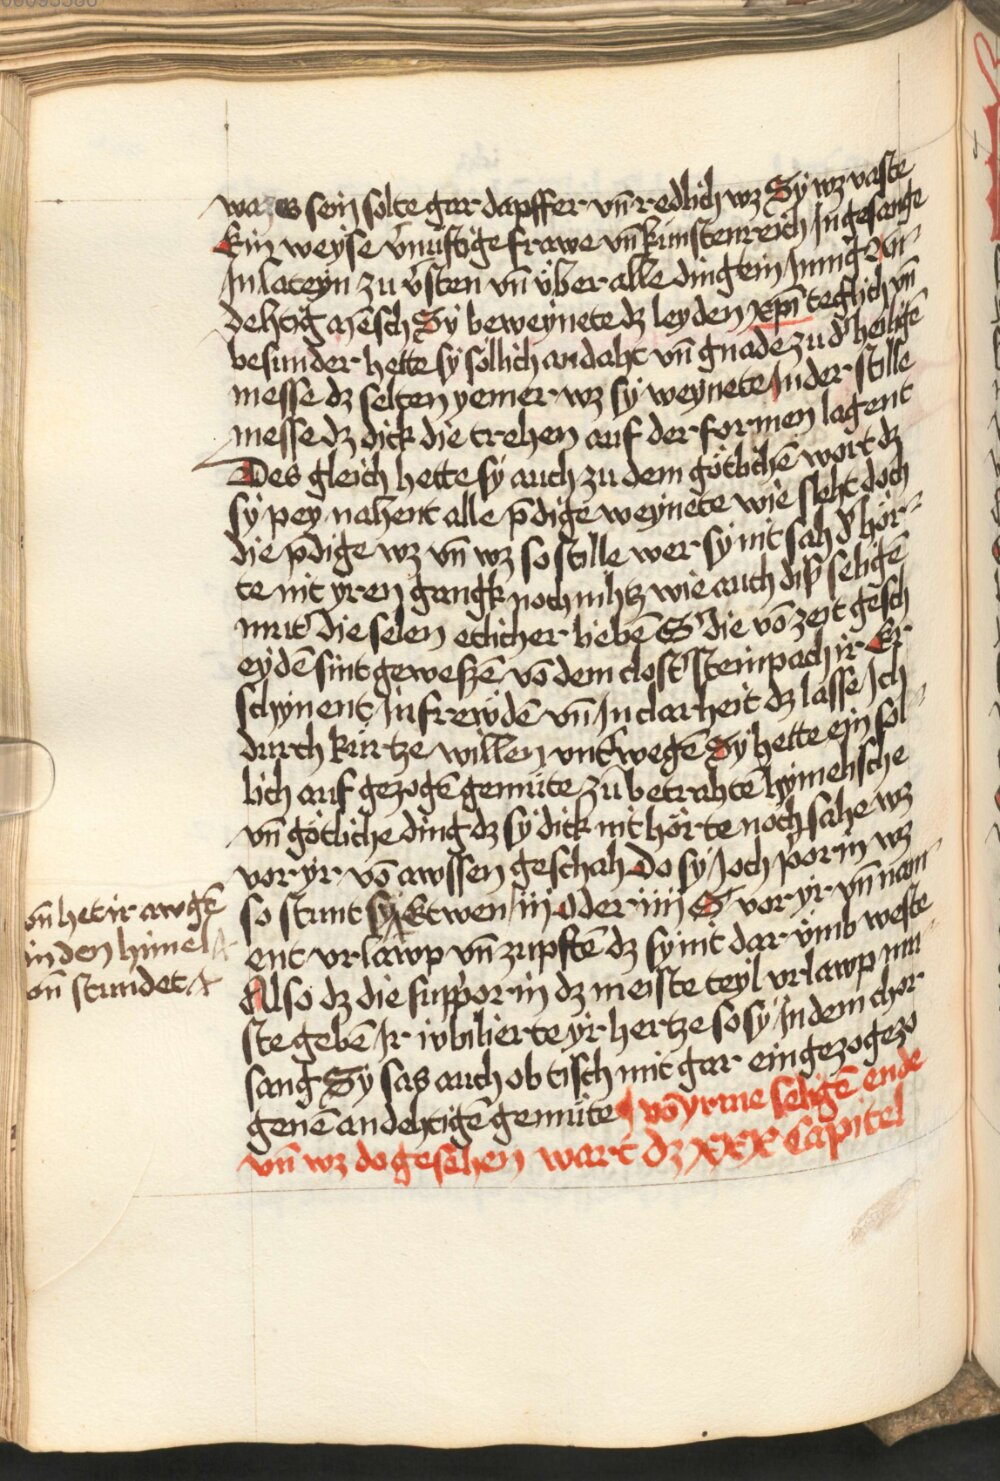 was es sein solte gar dapffer vn̄ redlich wz Sÿ wz vaste
Ein weÿse v̓nuftige frawe vn̄ kunstenreich In gesange
In lateÿn zu v̓sten vn̄ v̈ber alle ding ein Innig An
dehtig mēsch Sÿ beweÿnete dz leÿden xp̄i teglich vn̄
besunder hette sÿ sollich andaht vn̄ gnade zu d̓ heiligē
messe dz selten ÿemer wz sÿ weÿnete In der stille
messe dz dick die trehen auf der formen lagent
Des gleich hette sÿ auch zu dem götlichē wort dz
sÿ peÿ nahent alle p̄dige weÿnete wie sleht doch
die p̄dige wz vn̄ wz so stille wer sÿ nit sah d̓ hör
te nit ÿren gangk noch nihtz wie auch diß seligē
mut̓ die selen etlicher liebē S̓ die vō zeit gesch
eÿdē sint geweßē vō dem clost̓ steinpach ir Er
schÿnent In frewdē vn̄ In clarheit dz lasse Ich
durch kürtze willen vnt̓wegē Sÿ hette ein sol
lich auf gezogē gemüte zu betrahtē hÿmelische
vn̄ götliche ding dz sÿ dick nit hörte noch sahe wz
vor ÿr vō awssen geschah Do sÿ Joch p̓orin wz
so stunt sÿ Etwen iij oder iiij S̓ vor ÿr vn̄ nam
ent vrlawp vn̄ zupftē dz sÿ nit dar v̈mb weste
Also dz die supp̓orin dz meiste teÿl vrlawp mu
ste gebē Ir iubilierte ÿr hertze so sÿ In dem chor
sang Sÿ sas auch ob tisch mit gar ein gezogezo
genē andehtigē gemüte vō ÿrme seligē ende
vn̄ wz do gesehen wart dz XXX Capitel
vn̄ het ir awgē
in den himel
vn̄ stundet